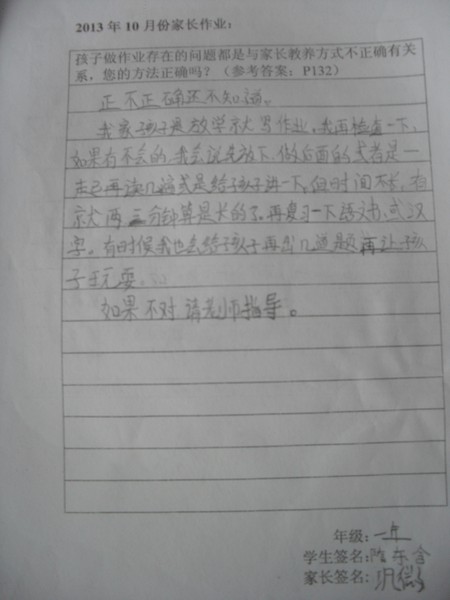 2013年10月份家长作业：
孩子做作业存在的问题都是与家长教养方式不正确有关
系，您的方法正确吗？（参考答案：P132）
正不正确还不知道。
我家孩子是放学就写作业，我再检查一下，
如果有不会的，我会说先放下，做后面的或者是一
起再读几遍或是给孩子讲一下，但时间不长，有
就两三分钟算是长的了。再复习一下语文书，或汉
字。有时候我也会给孩子再出几道题，再让孩
子去玩耍。
如果不对请老师指导。
年级：一年
学生签名：陈东含
家长签名：